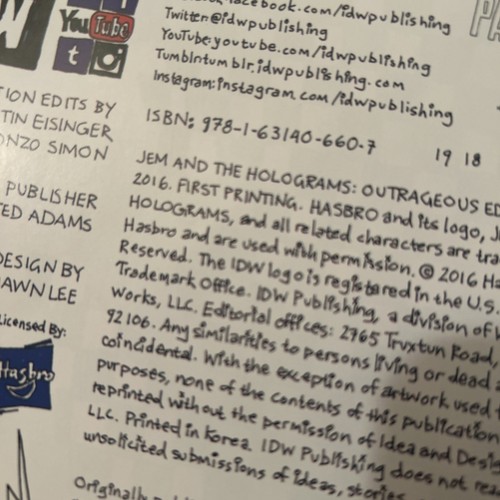 facebook.com/idwpublishing
Twitter:@idwpublishing
YouTube:youtube.com/idwpublishing
Tumblr:tumblr.idwpublishing.com
Instagram:instagram.com/idwpublishing
You Tube
t
ISBN: 978-1-63140-660-7
19 18
TION EDITS BY
TIN EISINGER
ONZO SIMON
PUBLISHER
TED ADAMS
DESIGN BY
SHAWN LEE
Licensed By:
Hasbro
JEM AND THE HOLOGRAMS: OUTRAGEOUS ED
2016. FIRST PRINTING. HASBRO and its logo, J
HOLOGRAMS, and all related characters are tra
Hasbro and are used with permission. © 2016 Ha
Reserved. The IDW logo is registered in the U.S.
Trademark Office. IDW Publishing, a division of
Works, LLC. Editorial offices: 2765 Truxtun Road,
92106. Any similarities to persons living or dead
coincidental. With the exception of artwork used
purposes, none of the contents of this publication
reprinted without the permission of Idea and Desi
LLC. Printed in Korea. IDW Publishing does not rea
unsolicited submissions of ideas, stories
Originally